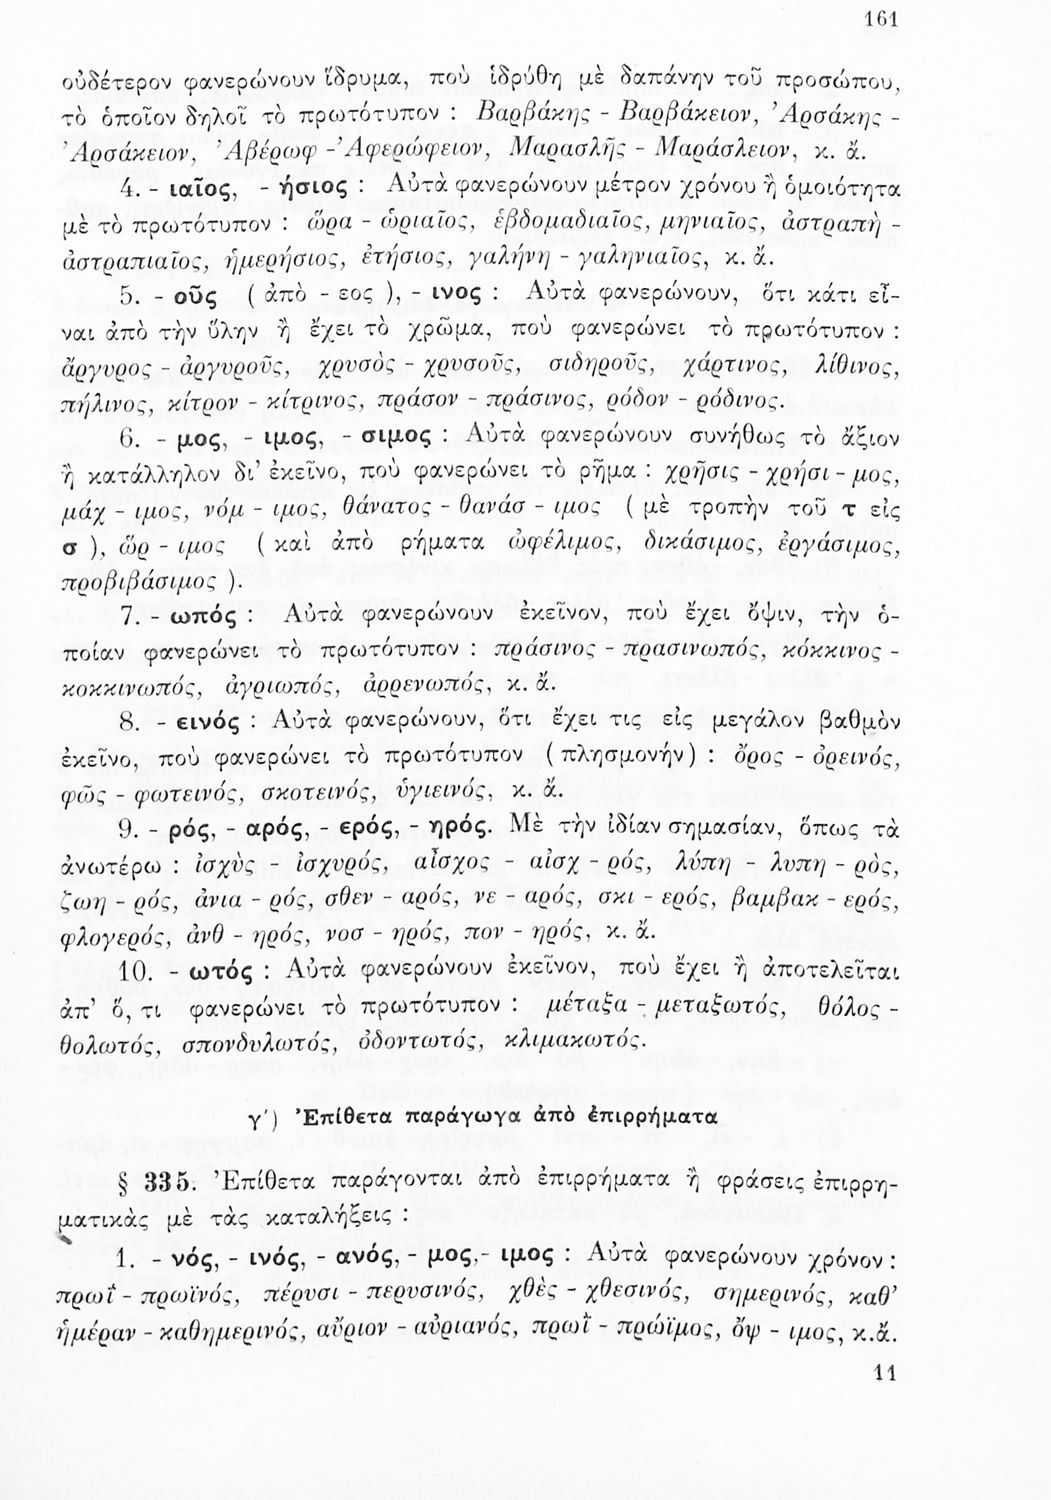 161
οὐδέτερον φανερώνουν ἵδρυμα, ποὺ ἱδρύθη μὲ δαπάνην τοῦ προσώπου,
τὸ ὁποῖον δηλοῖ τὸ πρωτότυπον : Βαρβάκης - Βαρβάκειον, Ἀρσάκης -
Ἀρσάκειον, Ἀβέρωφ - Ἀφερώφειον, Μαρασλῆς - Μαράσλειον, κ. ἄ.
4. - ιαῖος, - ήσιος : Αὐτὰ φανερώνουν μέτρον χρόνου ἢ ὁμοιότητα
μὲ τὸ πρωτότυπον : ὥρα - ὡριαῖος, ἑβδομαδιαῖος, μηνιαῖος, ἀστραπὴ -
ἀστραπιαῖος, ἡμερήσιος, ἐτήσιος, γαλήνη - γαληνιαῖος, κ. ἄ.
5. - οῦς ( ἀπὸ - εος ), - ινος : Αὐτὰ φανερώνουν, ὅτι κάτι εἶ-
ναι ἀπὸ τὴν ὕλην ἢ ἔχει τὸ χρῶμα, ποὺ φανερώνει τὸ πρωτότυπον :
ἄργυρος - ἀργυροῦς, χρυσὸς - χρυσοῦς, σιδηροῦς, χάρτινος, λίθινος,
πήλινος, κίτρον - κίτρινος, πράσον - πράσινος, ρόδον - ρόδινος.
6. - μος, - ιμος, - σιμος : Αὐτὰ φανερώνουν συνήθως τὸ ἄξιον
ἢ κατάλληλον δι’ ἐκεῖνο, ποὺ φανερώνει τὸ ρῆμα : χρῆσις - χρήσι - μος,
μάχ - ιμος, νόμ - ιμος, θάνατος - θανάσ - ιμος ( μὲ τροπὴν τοῦ τ εἰς
σ ), ὥρ - ιμος ( καὶ ἀπὸ ρήματα ὠφέλιμος, δικάσιμος, ἐργάσιμος,
προβιβάσιμος ).
7. - ωπός : Αὐτὰ φανερώνουν ἐκεῖνον, ποὺ ἔχει ὄψιν, τὴν ὁ-
ποίαν φανερώνει τὸ πρωτότυπον : πράσινος - πρασινωπός, κόκκινος -
κοκκινωπός, ἀγριωπός, ἀρρενωπός, κ. ἄ.
8. - εινός : Αὐτὰ φανερώνουν, ὅτι ἔχει τις εἰς μεγάλον βαθμὸν
ἐκεῖνο, ποὺ φανερώνει τὸ πρωτότυπον ( πλησμονήν ) : ὄρος - ὀρεινός,
φῶς - φωτεινός, σκοτεινός, ὑγιεινός, κ. ἄ.
9. - ρός, - αρός, - ερός, - ηρός. Μὲ τὴν ἰδίαν σημασίαν, ὅπως τὰ
ἀνωτέρω : ἰσχὺς - ἰσχυρός, αἶσχος - αἰσχ - ρός, λύπη - λυπη - ρὸς,
ζωη - ρός, ἀνια - ρός, σθεν - αρός, νε - αρός, σκι - ερός, βαμβακ - ερός,
φλογερός, ἀνθ - ηρός, νοσ - ηρός, πον - ηρός, κ. ἄ.
10. - ωτός : Αὐτὰ φανερώνουν ἐκεῖνον, ποὺ ἔχει ἢ ἀποτελεῖται
ἀπ’ ὅ, τι φανερώνει τὸ πρωτότυπον : μέταξα - μεταξωτός, θόλος -
θολωτός, σπονδυλωτός, ὀδοντωτός, κλιμακωτός.
γ΄) Ἐπίθετα παράγωγα ἀπὸ ἐπιρρήματα
§ 335. Ἐπίθετα παράγονται ἀπὸ ἐπιρρήματα ἢ φράσεις ἐπιρρη-
ματικὰς μὲ τὰς καταλήξεις :
1. - νός, - ινός, - ανός, - μος,- ιμος : Αὐτὰ φανερώνουν χρόνον :
πρωῒ - πρωϊνός, πέρυσι - περυσινός, χθὲς - χθεσινός, σημερινός, καθ’
ἡμέραν - καθημερινός, αὔριον - αὐριανός, πρωῒ - πρώϊμος, ὄψ - ιμος, κ.ἄ.
11